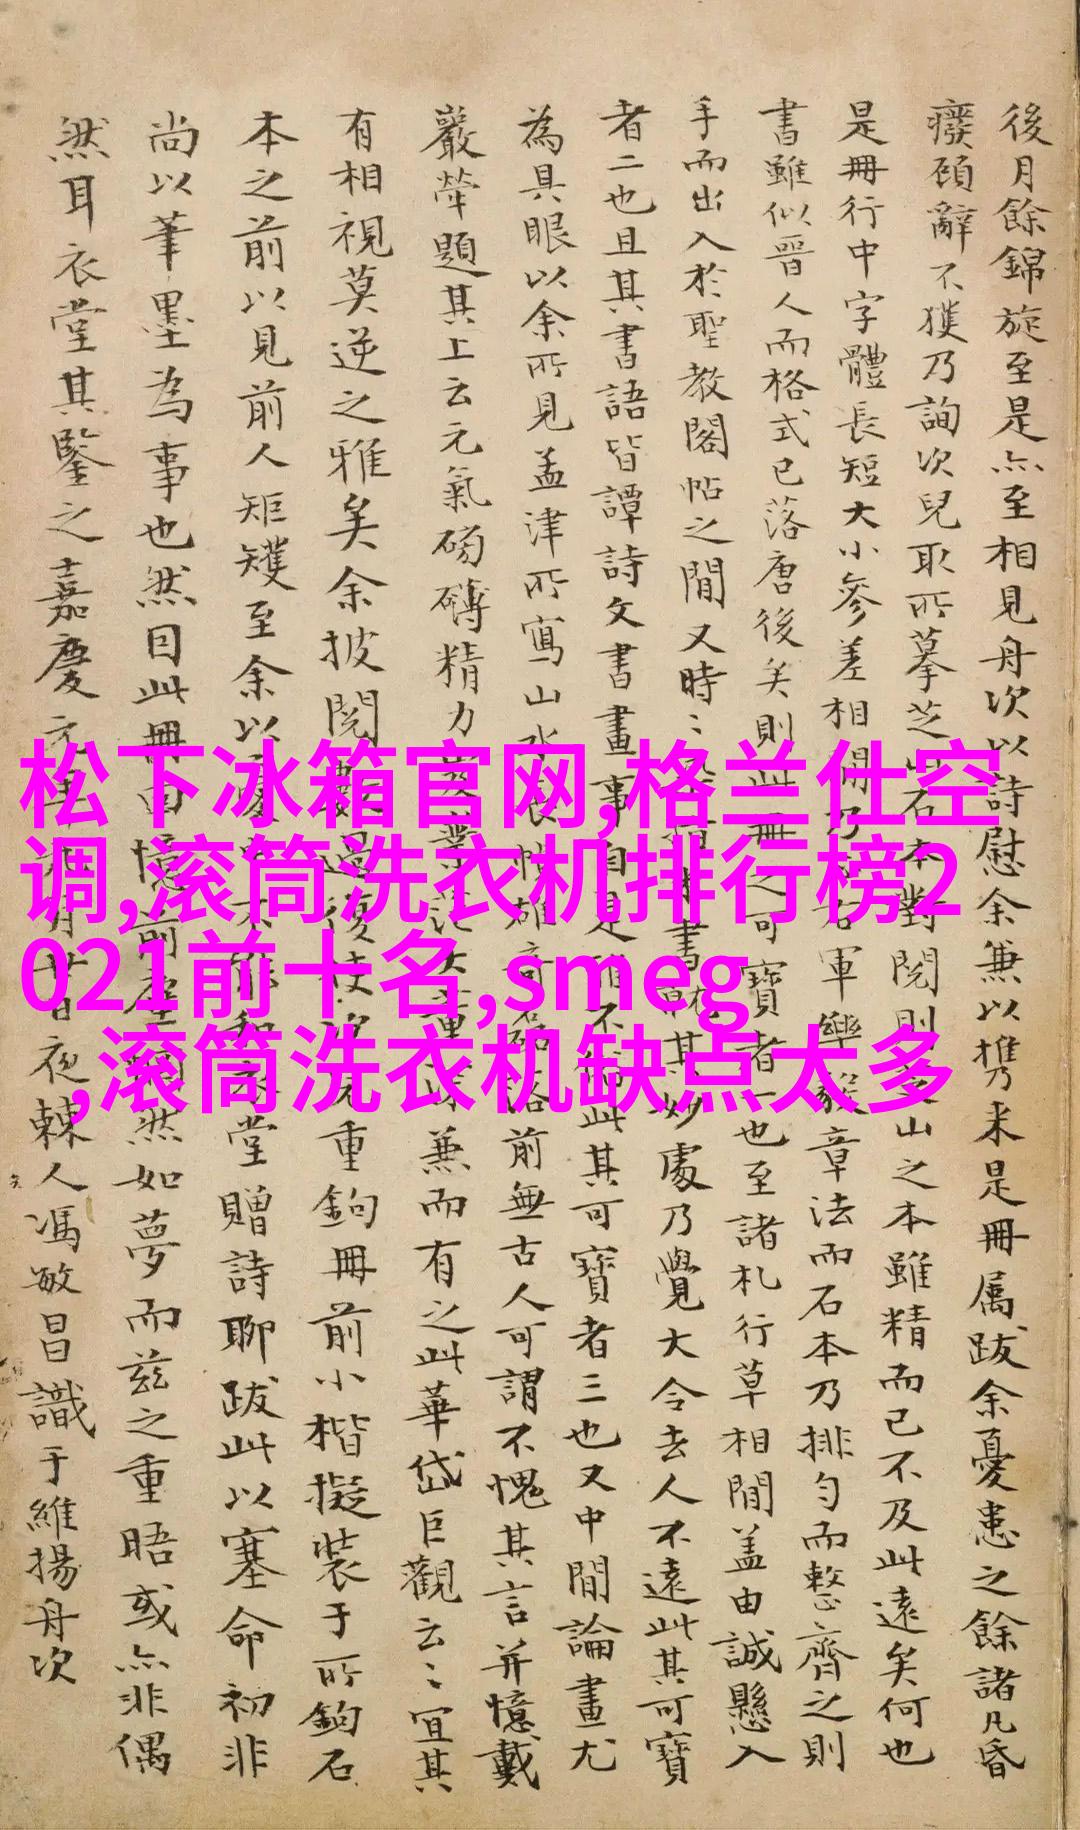 後月餘錦旋至是亦至相見舟次以詩慰余兼以携来是冊属跋余憂患之餘諸凡昏
癈頋辭不獲乃詢次兒取所摹芝山石本對閱則芝山之本雖精而已不及此遠矣何也
是冊行中字體長短大小參差相間乃右軍樂毅章法而石本乃排勻而整齊之則
書雖似晉人而格式已落唐後矣則此冊之可寶者一也至諸札行草相間盖由誠懸入
手而出入於聖教閣帖之間又時〻書其妙處乃覺大令去人不遠此其可寶
者二也且其書語皆譚詩文書畫事自是不此其可寶者三也又中間論畫尤
為具眼以余所見孟津所寫山水長帧雄奇磊落前無古人可謂不愧其言并憶戴
巖犖題其上云元氣磅礴精力兼而有之此華岱巨觀云〻宜其
有相視莫逆之雅矣余披閱數過復重鉤冊前小楷擬裝于所鉤石
本之前以見前人矩矱至余以堂贈詩聊跋此以塞命初非
尚以筆墨為事也然因此冊回憶前塵然如夢而茲之重晤或亦非偶
然耳衣堂其鑒之嘉慶元年月廿日夜棘人馮敏昌識于維揚舟次
松下冰箱官网,格兰仕空
调,滚筒洗衣机排行榜2
021前十名,smeg
,滚筒洗衣机缺点太多